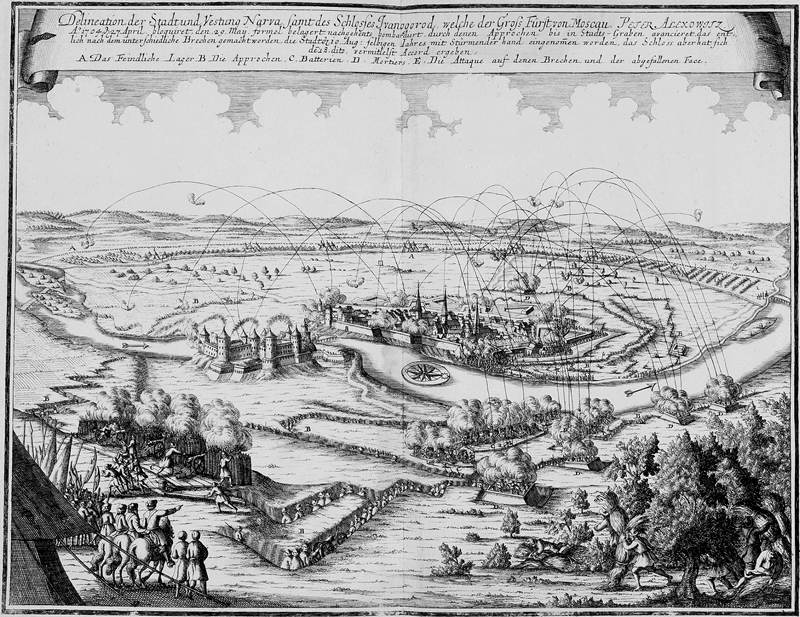 Delineation der Stadt und Vestung Narva, samt des Schlosses Ivanogorod, welche der Groß Fürst von Moscau PETER ALEXOWISZ
Aº 1704 d 27 April bloquiret, den 29 May formel belagert nachgehents bombardirt, durch denen Approchen bis in Stadts-Graben avanciret, das ent-
lich nach dem unterschiedliche Brechen gemacht worden, die Stadt 10 Aug: selbigen Jahres mit Stürmender hand eingenomen worden, das Schloss aber hat sich
des 8. dito vermittelst Accord ergeben.
A. Das Feindliche Lager. B. Die Approchen. C. Batterien. D. Mortiers. E. Die Attaque auf denen Brechen und der abgefallenen Face.